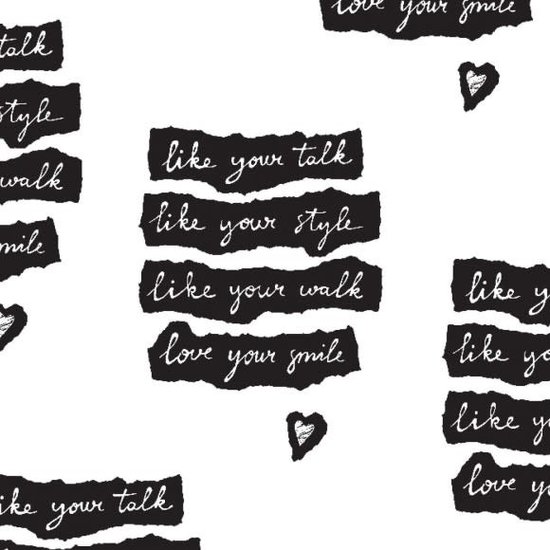 love your smile
talk
style
walk
smile
like your talk
like your style
like your walk
love your smile
like y
like yo
like y
love yo
like your talk